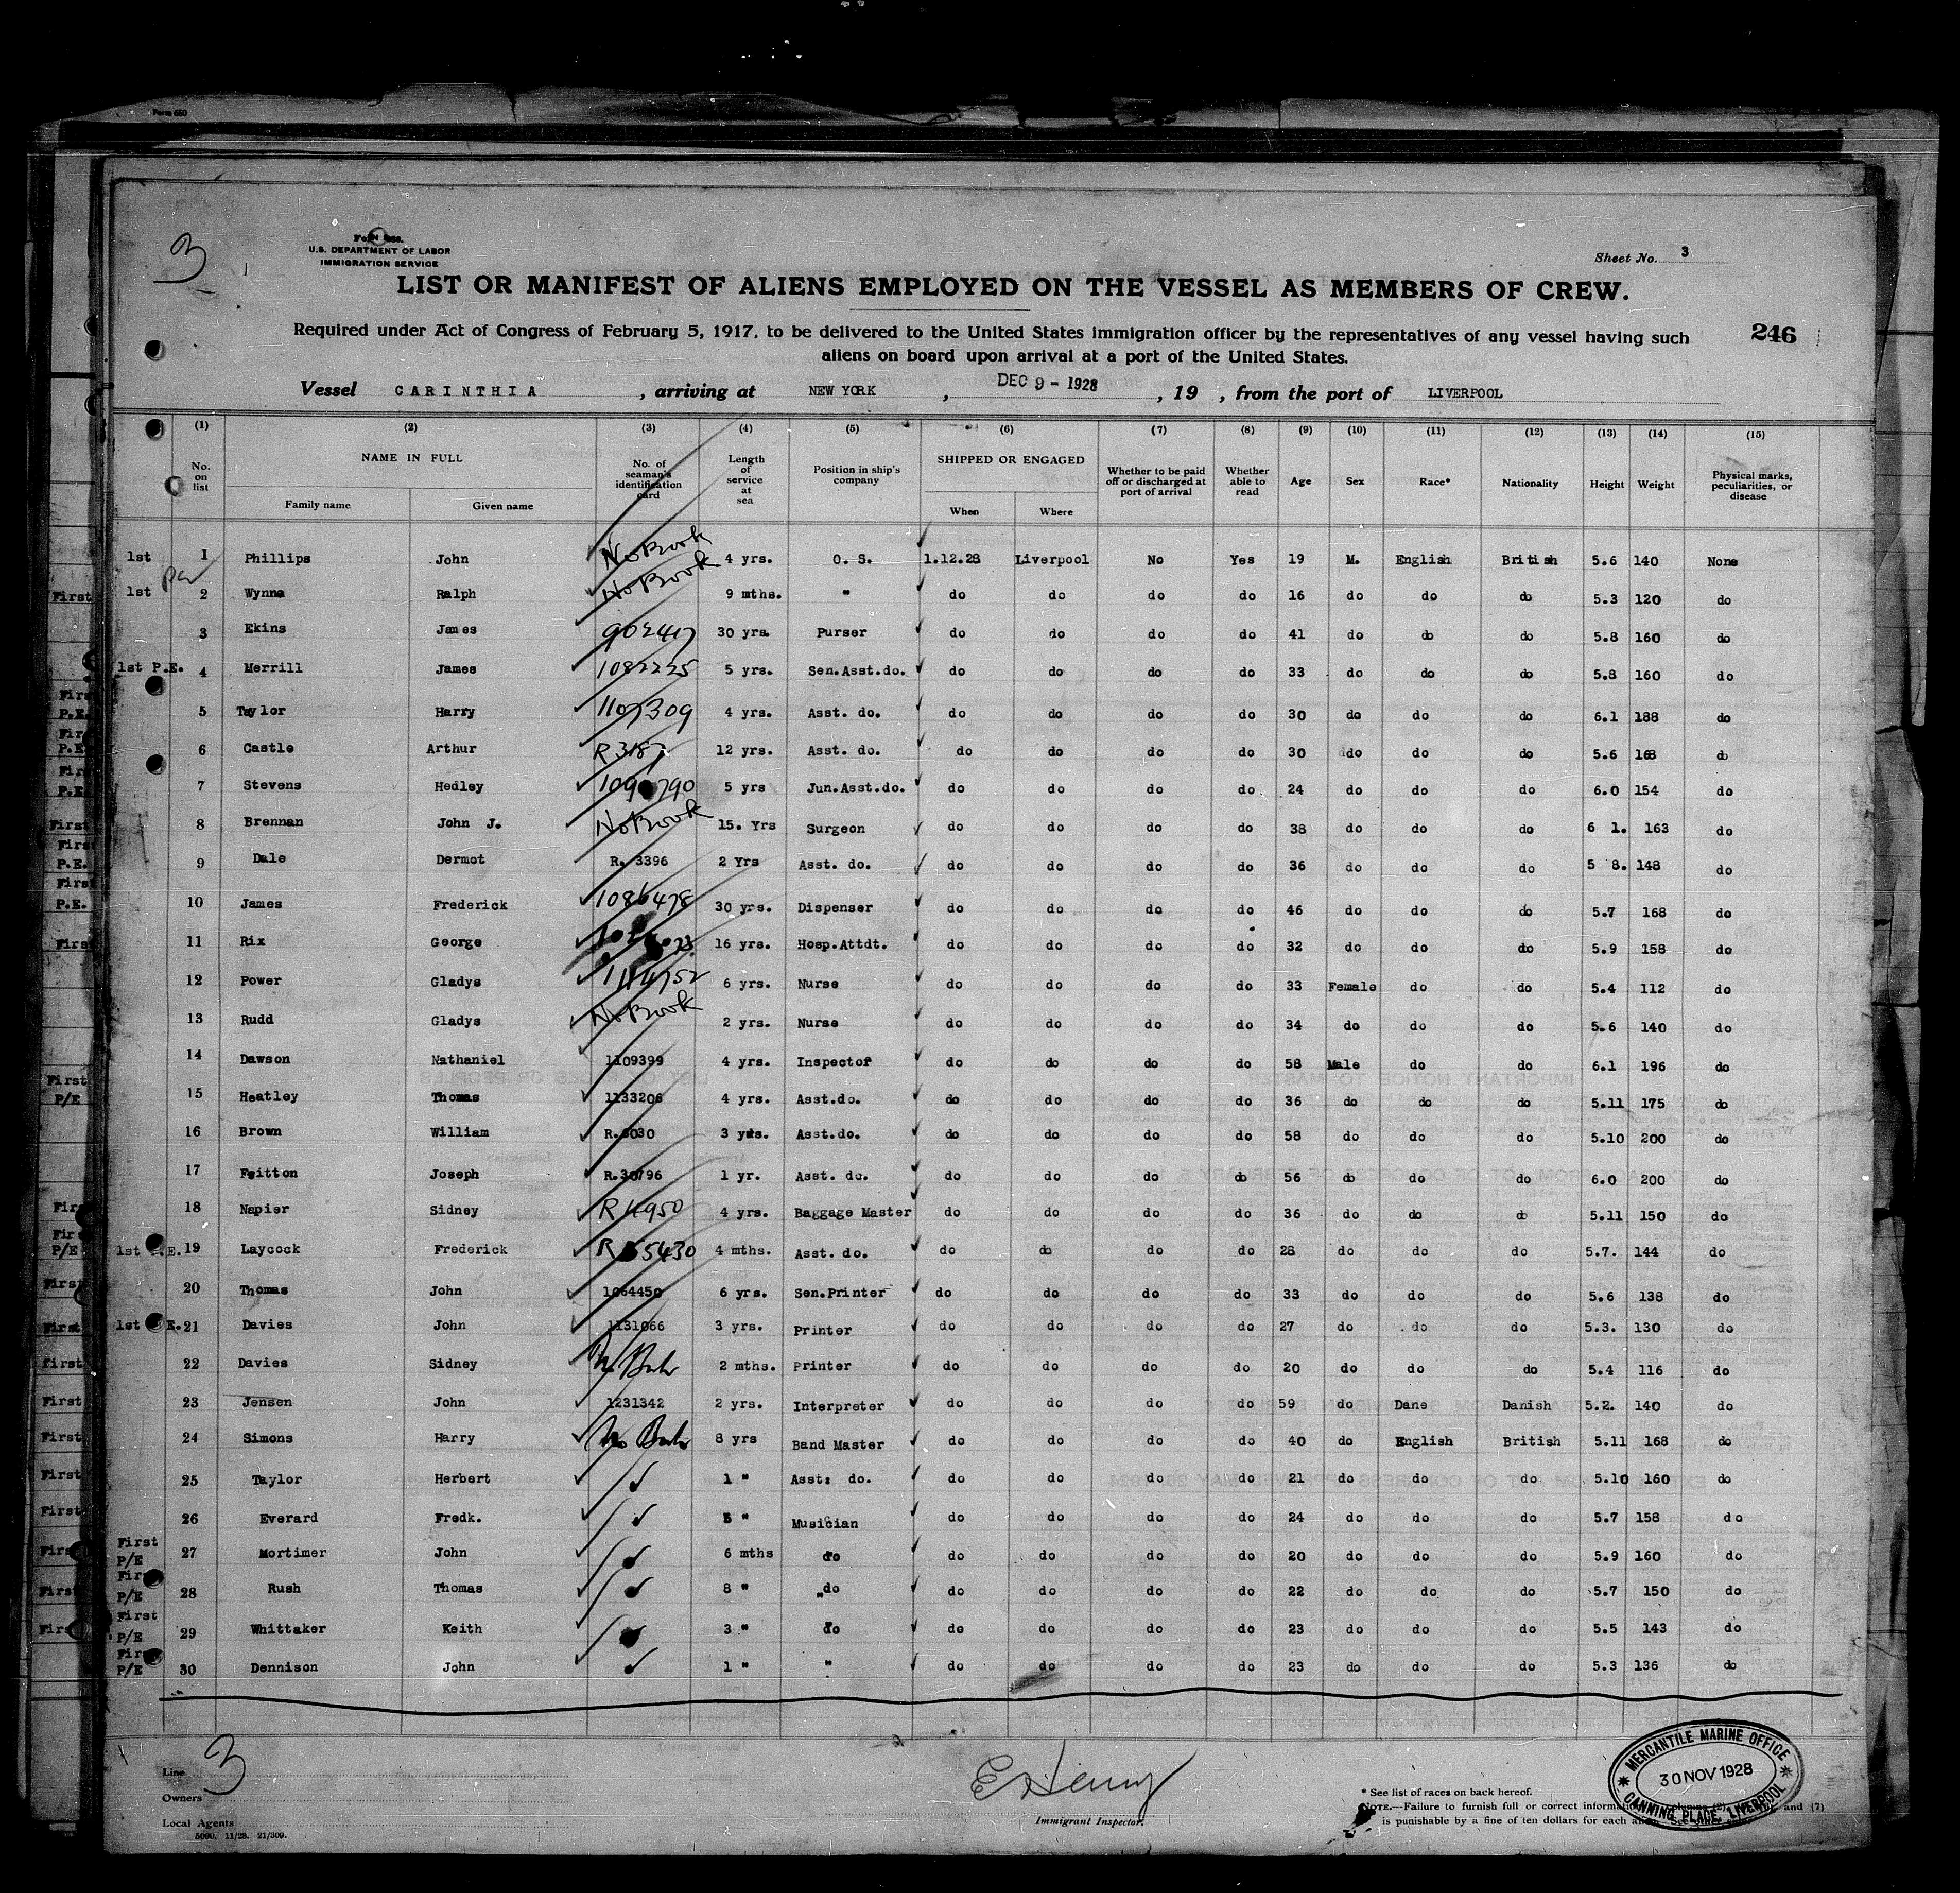 Form 680
3
Form 680.
U.S. DEPARTMENT OF LABOR
IMMIGRATION SERVICE
Sheet No. 3
LIST OR MANIFEST OF ALIENS EMPLOYED ON THE VESSEL AS MEMBERS OF CREW.
Required under Act of Congress of February 5, 1917, to be delivered to the United States immigration officer by the representatives of any vessel having such
aliens on board upon arrival at a port of the United States.
246
Vessel CARINTHIA , arriving at NEW YORK , DEC 9 - 1928 , 19 , from the port of LIVERPOOL
(1) (2) (3) (4) (5) (6) (7) (8) (9) (10) (11) (12) (13) (14) (15)
No. on list NAME IN FULL Family name Given name No. of seaman's identification card Length of service at sea Position in ship's company SHIPPED OR ENGAGED When Where Whether to be paid off or discharged at port of arrival Whether able to read Age Sex Race* Nationality Height Weight Physical marks, peculiarities, or disease
1st 1 Phillips John No Book 4 yrs. O. S. 1.12.28 Liverpool No Yes 19 M. English British 5.6 140 None
1st 2 Wynne Ralph No Book 9 mths. " do do do do 16 do do do 5.3 120 do
3 Ekins James 902417 30 yrs. Purser do do do do 41 do do do 5.8 160 do
1st P.E. 4 Merrill James 1082225 5 yrs. Sen.Asst.do. do do do do 33 do do do 5.8 160 do
5 Taylor Harry 1107309 4 yrs. Asst. do. do do do do 30 do do do 6.1 188 do
6 Castle Arthur 12 yrs. Asst. do. do do do do 30 do do do 5.6 168 do
7 Stevens Hedley 5 yrs Jun.Asst.do. do do do do 24 do do do 6.0 154 do
8 Brennan John J. No Book 15. Yrs Surgeon do do do do 38 do do do 6 1. 163 do
9 Dale Dermot R. 3396 2 Yrs Asst. do. do do do do 36 do do do 5 8. 148 do
10 James Frederick 1086478 30 yrs. Dispenser do do do do 46 do do do 5.7 168 do
11 Rix George 16 yrs. Hosp.Attdt. do do do do 32 do do do 5.9 158 do
12 Power Gladys 1114752 6 yrs. Nurse do do do do 33 Female do do 5.4 112 do
13 Rudd Gladys No Book 2 yrs. Nurse do do do do 34 do do do 5.6 140 do
14 Dawson Nathaniel 1109399 4 yrs. Inspector do do do do 58 Male do do 6.1 196 do
15 Heatley Thomas 1133206 4 yrs. Asst.do. do do do do 36 do do do 5.11 175 do
16 Brown William R.6030 3 yrs. Asst.do. do do do do 58 do do do 5.10 200 do
17 Feitton Joseph R.30796 1 yr. Asst. do. do do do do 56 do do do 6.0 200 do
18 Napier Sidney 4 yrs. Baggage Master do do do do 36 do do do 5.11 150 do
1st P.E. 19 Laycock Frederick 4 mths. Asst. do. do do do do 28 do do do 5.7. 144 do
20 Thomas John 1064450 6 yrs. Sen.Printer do do do do 33 do do do 5.6 138 do
1st P.E. 21 Davies John 1131066 3 yrs. Printer do do do do 27 do do do 5.3. 130 do
22 Davies Sidney No Book 2 mths. Printer do do do do 20 do do do 5.4 116 do
23 Jensen John 1231342 2 yrs. Interpreter do do do do 59 do Dane Danish 5.2. 140 do
24 Simons Harry No Book 8 yrs Band Master do do do do 40 do English British 5.11 168 do
25 Taylor Herbert 1 " Asst: do. do do do do 21 do do do 5.10 160 do
26 Everard Fredk. " Musician do do do do 24 do do do 5.7 158 do
First P/E 27 Mortimer John 6 mths do do do do do 20 do do do 5.9 160 do
First P/E 28 Rush Thomas 8 " do do do do do 22 do do do 5.7 150 do
First P/E 29 Whittaker Keith 3 " do do do do do 23 do do do 5.5 143 do
First P/E 30 Dennison John 1 " " do do do do 23 do do do 5.3 136 do
3
Line
Owners
Local Agents
5000. 11/28. 21/309.
E Henry
Immigrant Inspector.
* See list of races on back hereof.
NOTE.—Failure to furnish full or correct and (7)
is punishable by a fine of ten dollars for each
MERCANTILE MARINE OFFICE
30 NOV 1928
CANNING PLACE, LIVERPOOL